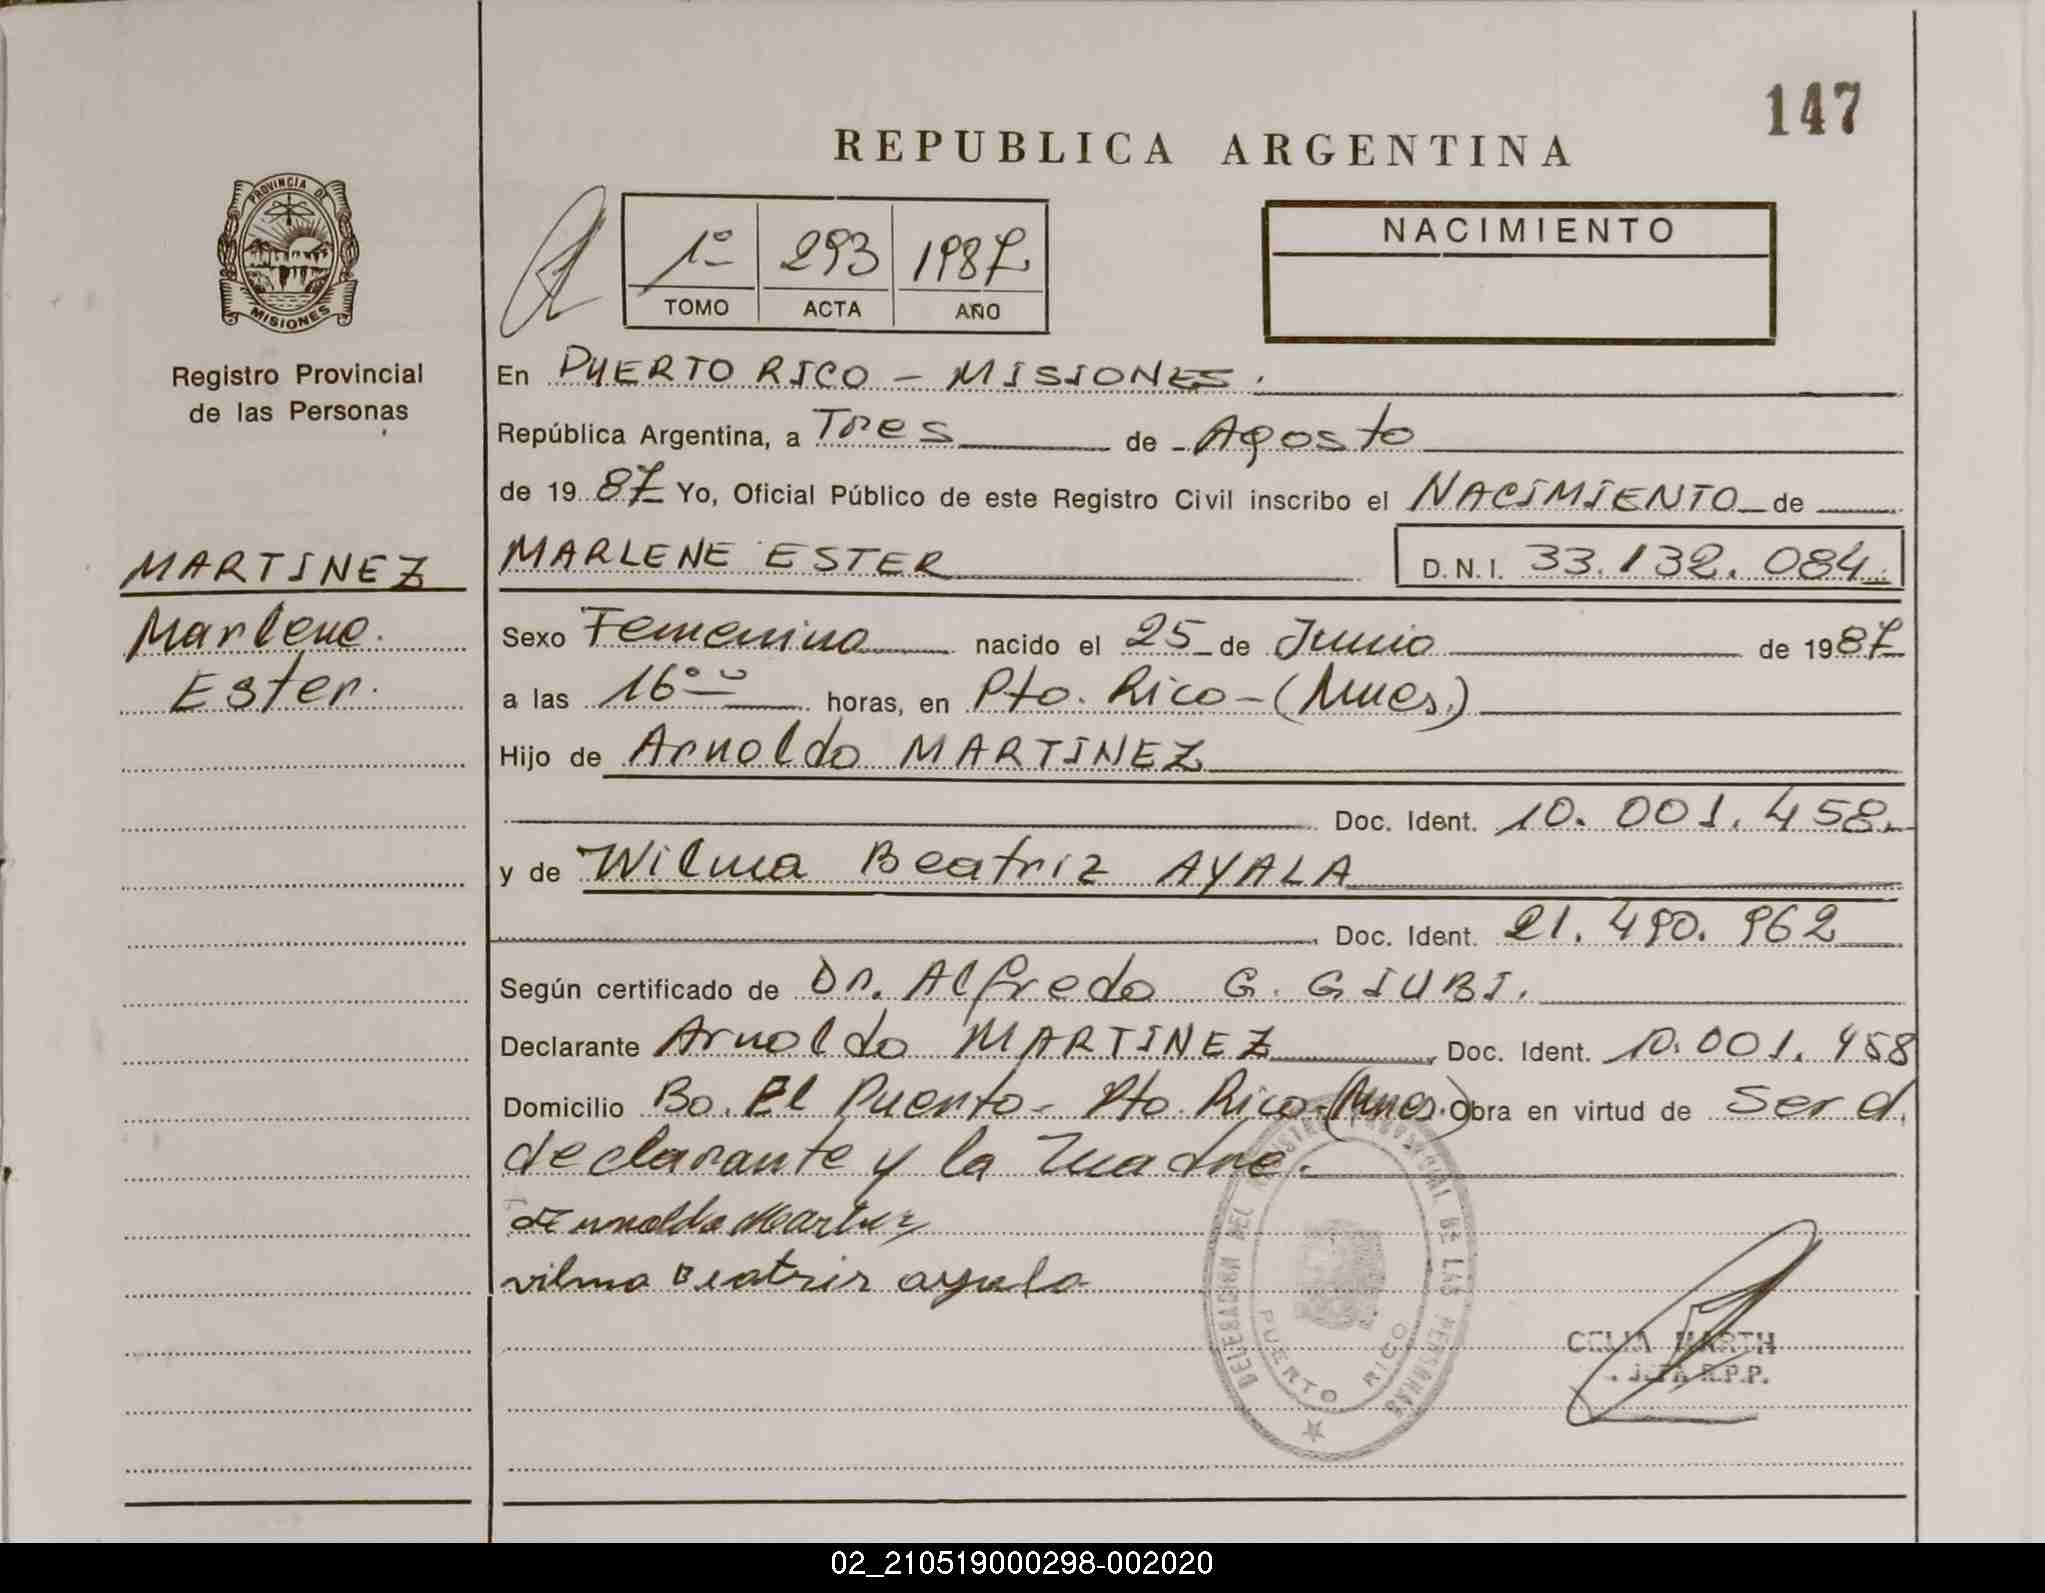 147
REPUBLICA ARGENTINA
PROVINCIA DE
MISIONES
Registro Provincial
de las Personas
1º 293 1987
TOMO ACTA AÑO
NACIMIENTO
En PUERTO RICO - MISIONES.
República Argentina, a Tres de Agosto
de 1987 Yo, Oficial Público de este Registro Civil inscribo el NACIMIENTO de
MARTINEZ
Marlene.
Ester.
MARLENE ESTER D.N.I. 33.132.084.
Sexo Femenino nacido el 25 de Junio de 1987
a las 16ºº horas, en Pto. Rico - (Mnes.)
Hijo de Arnoldo MARTINEZ
Doc. Ident. 10.001.458.
y de Wilma Beatriz AYALA
Doc. Ident. 21.490.962
Según certificado de Dr. Alfredo G. GIUBI.
Declarante Arnoldo MARTINEZ Doc. Ident. 10.001.458
Domicilio Bo. El Puerto - Pto. Rico - (Mnes.) Obra en virtud de ser el
declarante y la madre.
Arnoldo Martinez
vilma Beatriz ayala
DELEGACION DEL REGISTRO PROVINCIAL DE LAS PERSONAS
PUERTO RICO
CELIA MARTH
R.P.P.
02_210519000298-002020